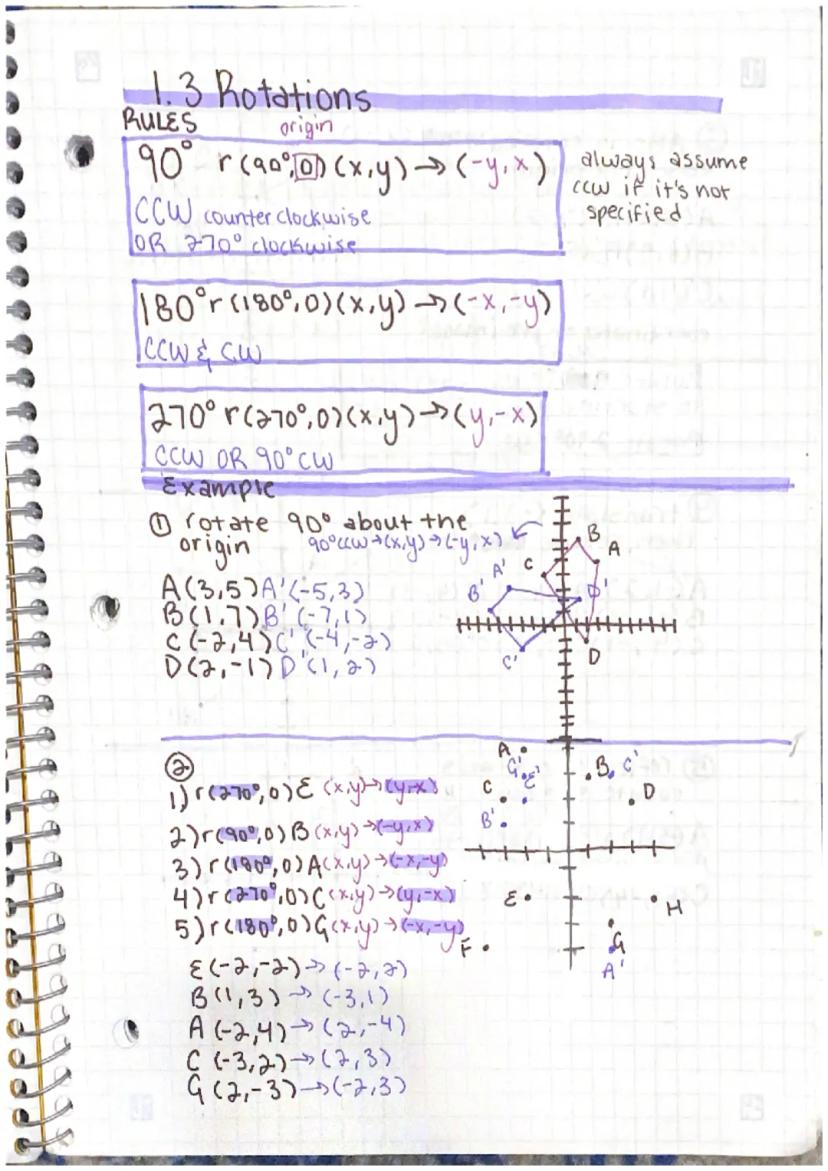 1.3 Rotations
RULES origin
90° r(90°,0)(x,y)→(-y,x)
CCW counterclockwise
OR 270° clockwise
always assume
ccw if it's not
specified
180° r(180°,0)(x,y)→(-x,-y)
CCW & CW
270° r(270°,0)(x,y)→(y,-x)
CCW OR 90° CW
Example
① rotate 90° about the
origin 90°ccw→(x,y)→(-y,x)
A(3,5) A'(-5,3)
B(1,7) B'(-7,1)
C(-2,4) C'(-4,-2)
D(2,-1) D'(1,2)
B
A
C
A'
B'
D'
C'
D
②
1) r(270°,0) E (x,y)→(y,-x)
2) r(90°,0) B (x,y)→(-y,x)
3) r(180°,0) A (x,y)→(-x,-y)
4) r(270°,0) C (x,y)→(y,-x)
5) r(180°,0) G (x,y)→(-x,-y)
E(-2,-2)→(-2,2)
B(1,3)→(-3,1)
A(-2,4)→(2,-4)
C(-3,2)→(2,3)
G(2,-3)→(-2,3)
A
G' E'
B C'
C
D
B'
E
H
F
G
A'